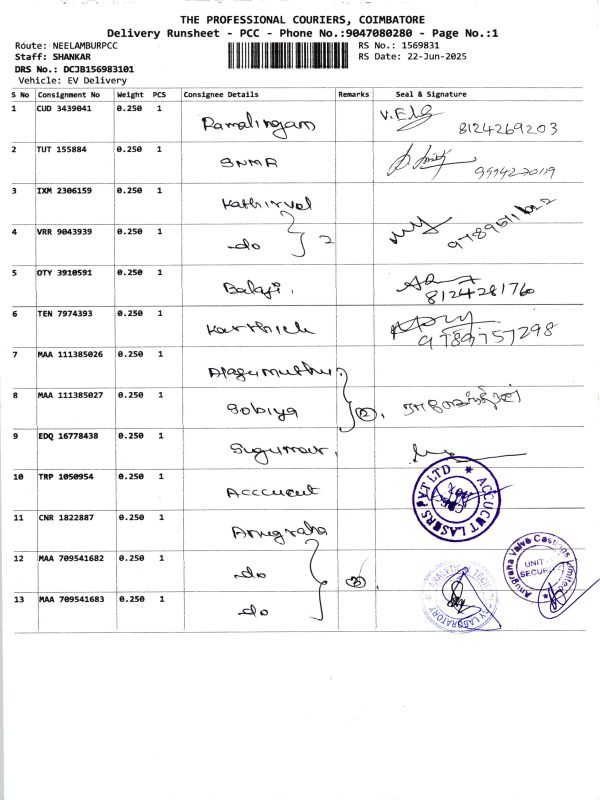 THE PROFESSIONAL COURIERS, COIMBATORE
Delivery Runsheet - PCC - Phone No.:9047080280 - Page No.:1
Route: NEELAMBURPCC RS No.: 1569831
Staff: SHANKAR RS Date: 22-Jun-2025
DRS No.: DCJB156983101
Vehicle: EV Delivery
S No Consignment No Weight PCS Consignee Details Remarks Seal & Signature
1 CUD 3439041 0.250 1 Ramalingam 8124269203
2 TUT 155884 0.250 1 SNMR
3 IXM 2306159 0.250 1 Kathirvel
4 VRR 9043939 0.250 1 do 2
5 OTY 3910591 0.250 1 Balaji. 812428176
6 TEN 7974393 0.250 1 Karthick 9789757298
7 MAA 111385026 0.250 1 Alagumuthu
8 MAA 111385027 0.250 1 Gobiya 2
9 EDQ 16778438 0.250 1 Sugumar
10 TRP 1050954 0.250 1 Acccucut
ACCUCUT LASERS PVT LTD
11 CNR 1822887 0.250 1 Anugraha
12 MAA 709541682 0.250 1 do 3
Anugraha Valve Castings Limited
UNIT
SECURITY
13 MAA 709541683 0.250 1 do
LABORATORY